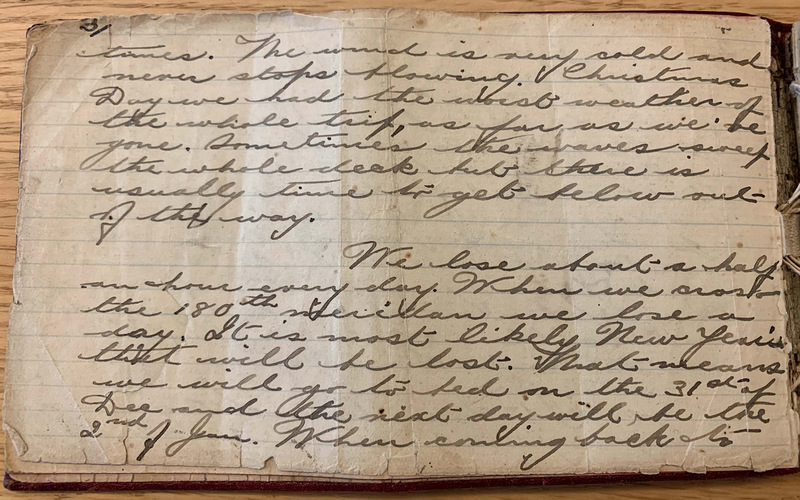 3/
times. The wind is very cold and
never stops blowing. Christmas
Day we had the worst weather of
the whole trip, as far as we've
gone. Sometimes the waves sweep
the whole deck but there is
usually time to get below out
of the way.
We lose about a half
an hour every day. When we cross
the 180th meridan we lose a
day. It is most likely New Year's
that will be lost. That means
we will go to bed on the 31st of
Dec and the next day will be the
2nd of Jan. When coming back to